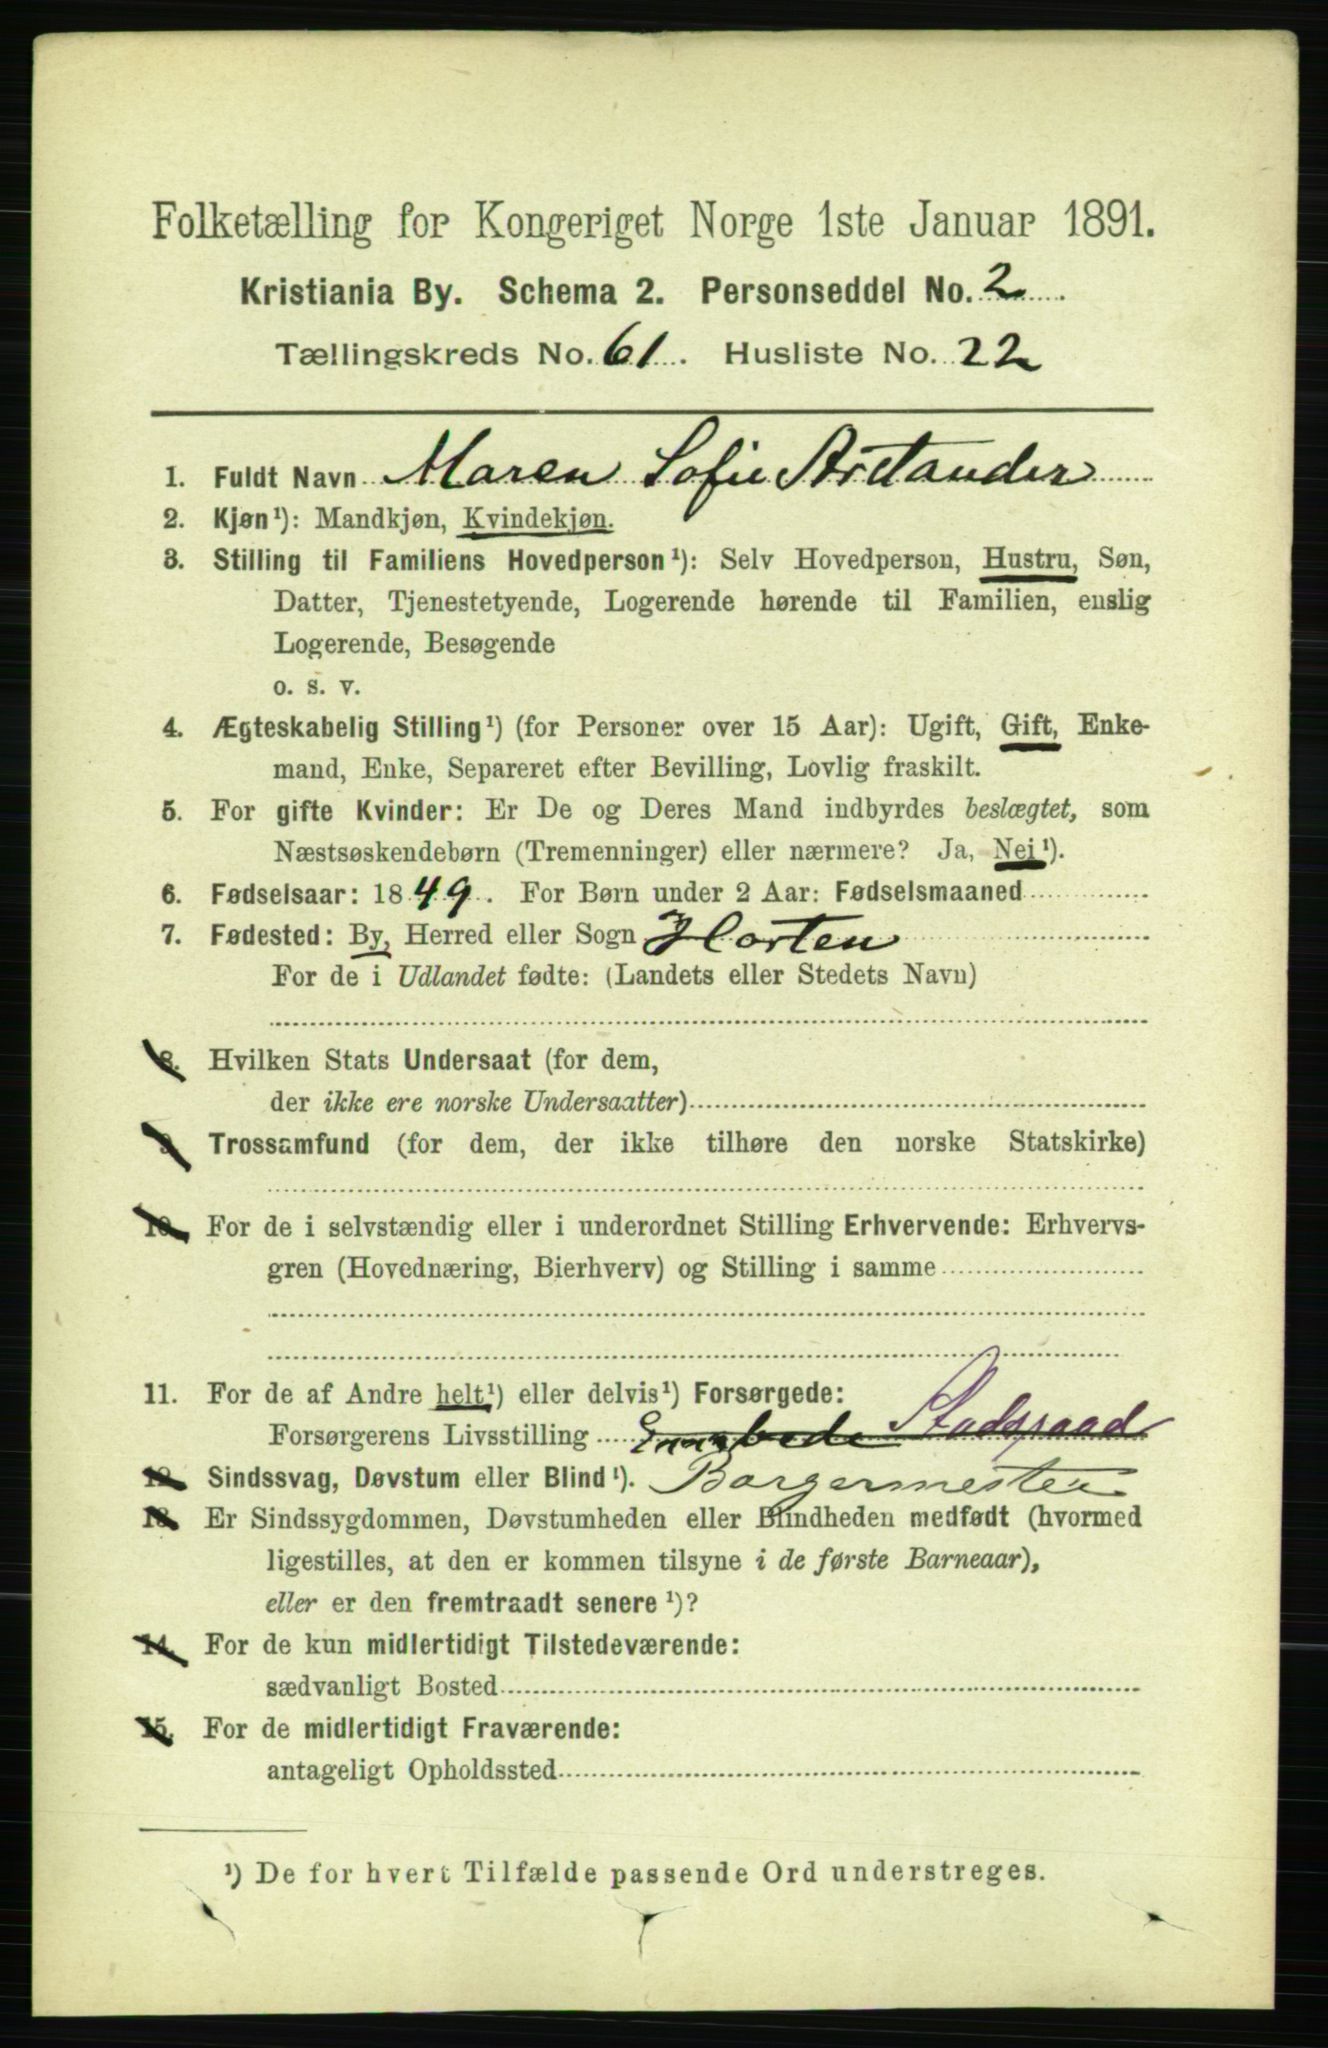 Folketælling for Kongeriget Norge 1ste Januar 1891.
Kristiania By. Schema 2. Personseddel No. 2
Tællingskreds No. 61. Husliste No. 22
1. Fuldt Navn Maren Sofie Arctander
2. Kjøn¹): Mandkjøn, Kvindekjøn.
3. Stilling til Familiens Hovedperson¹): Selv Hovedperson, Hustru, Søn,
Datter, Tjenestetyende, Logerende hørende til Familien, enslig
Logerende, Besøgende
o. s. v.
4. Ægteskabelig Stilling¹) (for Personer over 15 Aar): Ugift, Gift, Enke-
mand, Enke, Separeret efter Bevilling, Lovlig fraskilt.
5. For gifte Kvinder: Er De og Deres Mand indbyrdes beslægtet, som
Næstsøskendebørn (Tremenninger) eller nærmere? Ja, Nei¹).
6. Fødselsaar: 1849. For Børn under 2 Aar: Fødselsmaaned
7. Fødested: By, Herred eller Sogn Horten
For de i Udlandet fødte: (Landets eller Stedets Navn)
8. Hvilken Stats Undersaat (for dem,
der ikke ere norske Undersaatter)
9. Trossamfund (for dem, der ikke tilhøre den norske Statskirke)
10. For de i selvstændig eller i underordnet Stilling Erhvervende: Erhvervs-
gren (Hovednæring, Bierhverv) og Stilling i samme
11. For de af Andre helt¹) eller delvis¹) Forsørgede:
Forsørgerens Livsstilling Statsraad
12. Sindssvag, Døvstum eller Blind¹). Borgermester
13. Er Sindssygdommen, Døvstumheden eller Blindheden medfødt (hvormed
ligestilles, at den er kommen tilsyne i de første Barneaar),
eller er den fremtraadt senere¹)?
14. For de kun midlertidigt Tilstedeværende:
sædvanligt Bosted
15. For de midlertidigt Fraværende:
antageligt Opholdssted
¹) De for hvert Tilfælde passende Ord understreges.